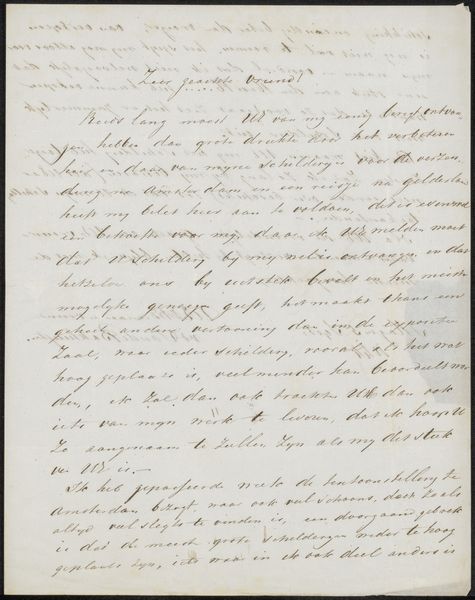 Zeer geachte Vriend!
Reeds lang moest UE van my eenig berigt ontvan
gen hebben dan grote drukte door het verbeteren
hier en daar van myne schilderyen voor de verzen
ding na Amsterdam en een reisje na Gelderlan
heeft my belet hier aan te voldoen, dit is evenwel
een behoefte voor my, daar ik UE melden moet
dat U schildery by my wel is ontvangen en dat
hetzelve ons by uitstek bevalt en het meeste
mogelyke genoegen geeft, het maakt thans een
geheel andere vertooning dan in de expositie
Zaal, waar ieder schildery, vooral als het wat
hoog geplaatst is, veel minder kan beoordeelt wo
den, ik zal dan ook trachten UE dan ook
iets van myn werk te leveren, dat ik hoop U
Zo aangenaam te zullen zyn als my dit stuk
van UE is.—
Ik heb gepasseerde week de tentoonstelling te
Amsterdam bezogt, waar ook veel schoons, doch zoals
altyd veel slegts te vinden is, een doorgaand gebrek
is dat de meest grote schilderyen weder te hoog
geplaatst zyn, iets waar in ik ook deel anders is